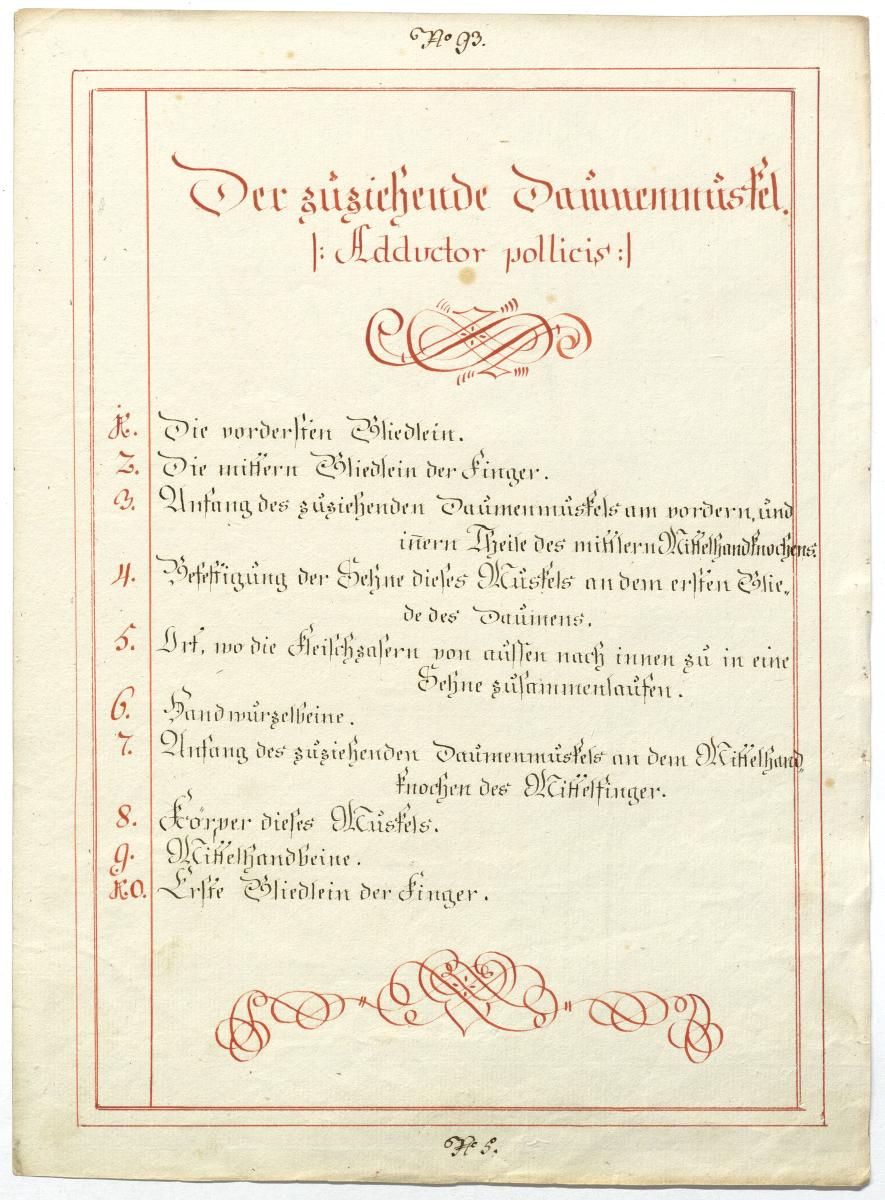 No 93.
Der zuziehende Daumenmuskel.
|: Adductor pollicis :|
1. Die vordersten Gliedlein.
2. Die mittern Gliedlein der Finger.
3. Anfang des zuziehenden Daumenmuskels am vordern, und
iñern Theile des mittlern Mittelhandknochens.
4. Befestigung der Sehne dieses Muskels an dem ersten Glie„
de des Daumens.
5. Ort, wo die Fleischzasern von aussen nach innen zu in eine
Sehne zusammenlaufen.
6. Handwurzelbeine.
7. Anfang des zuziehenden Daumenmuskels an dem Mittelhand„
knochen des Mittelfinger.
8. Körper dieses Muskels.
9. Mittelhandbeine.
10. Erste Gliedlein der Finger.
No 5.